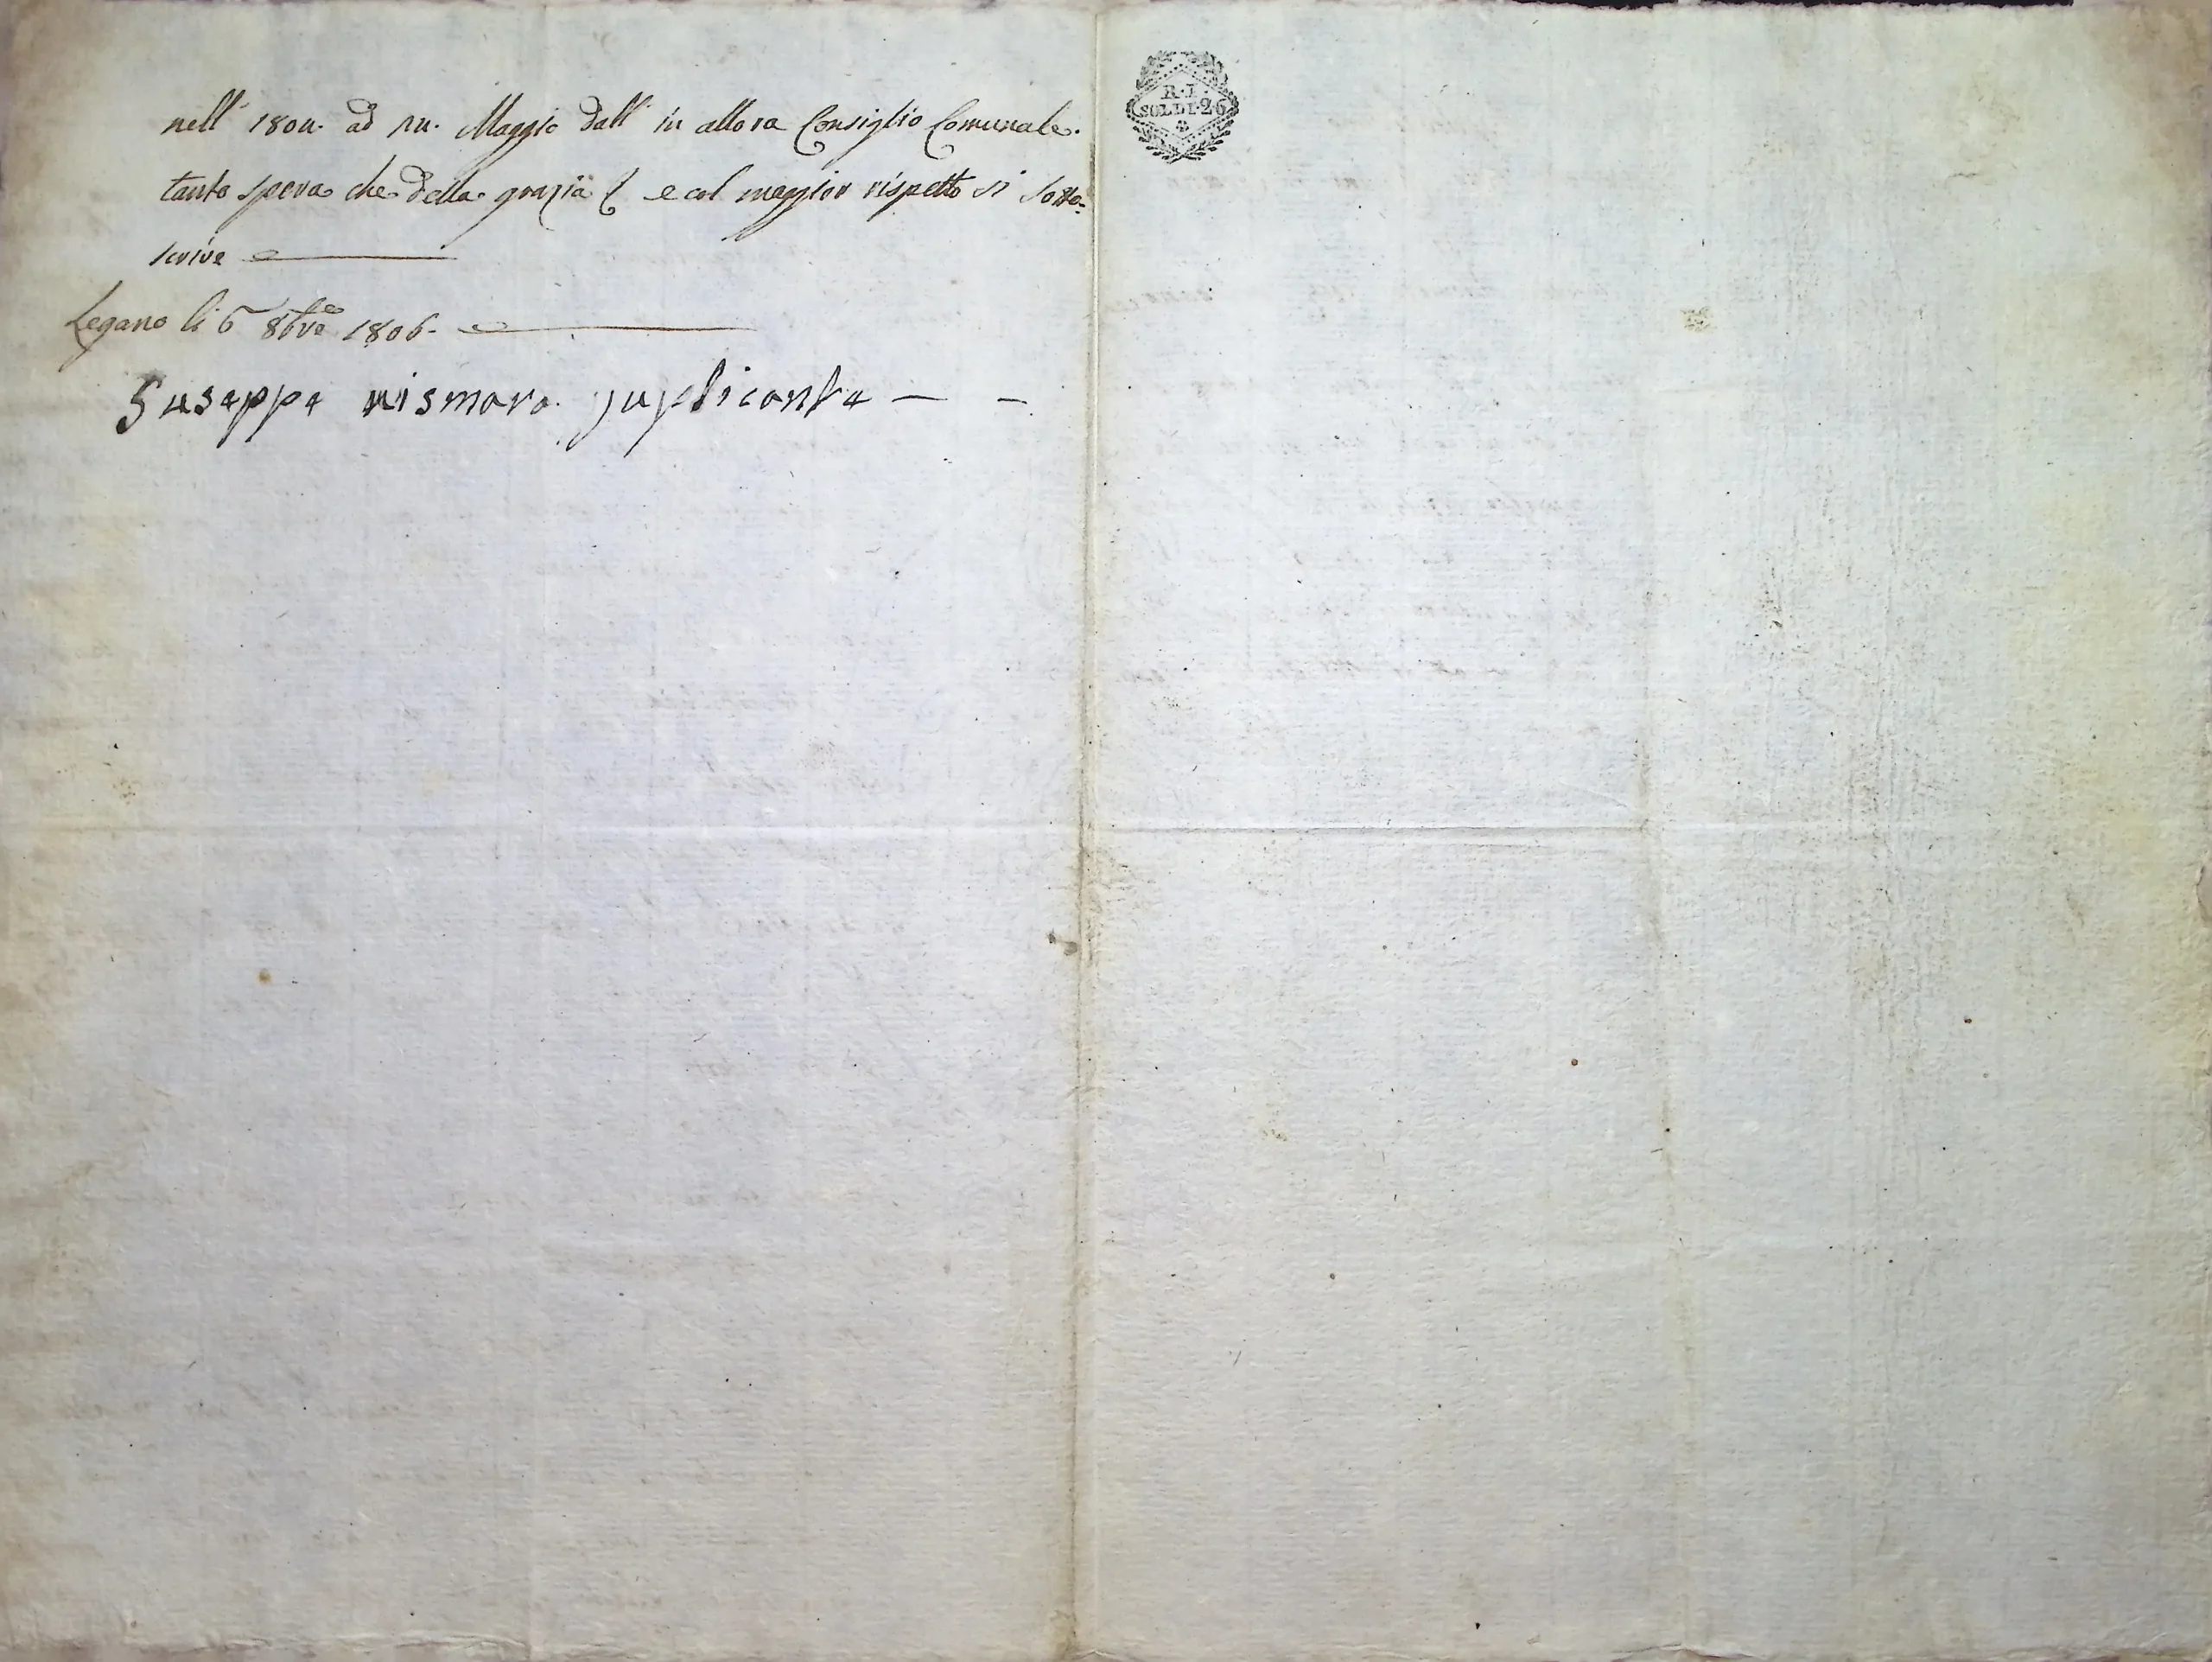 nell' 1804. ad 14. Maggio dall' in allora Consiglio Comunale.
tanto spera che della grazia e col maggior rispetto si sotto-
scrive
Legano li 6 8bre 1806.
Guseppe nismara suplicante — -
R. I.
SOLDI. 26